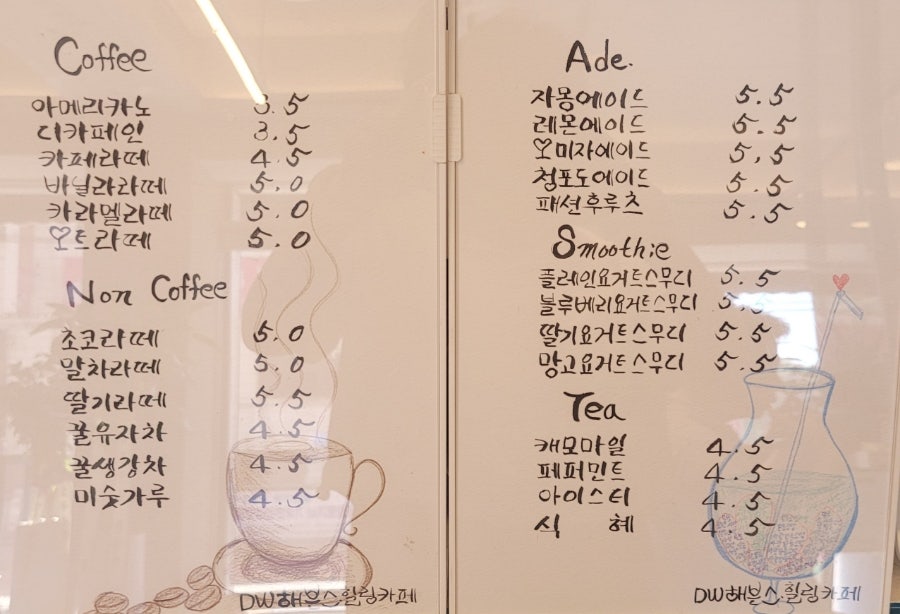 Coffee
아메리카노 3.5
디카페인 3.5
카페라떼 4.5
바닐라라떼 5.0
카라멜라떼 5.0
오트라떼 5.0
Non Coffee
초코라떼 5.0
말차라떼 5.0
딸기라떼 5.5
꿀유자차 4.5
꿀생강차 4.5
미숫가루 4.5
DW해븐스힐링카페
Ade.
자몽에이드 5.5
레몬에이드 5.5
오미자에이드 5.5
청포도에이드 5.5
패션후루츠 5.5
Smoothie
플레인요거트스무디 5.5
블루베리요거트스무디
딸기요거트스무디 5.5
망고요거트스무디 5.5
Tea
캐모마일 4.5
페퍼민트 4.5
아이스티 4.5
식 혜 4.5
DW해븐스.힐링카페